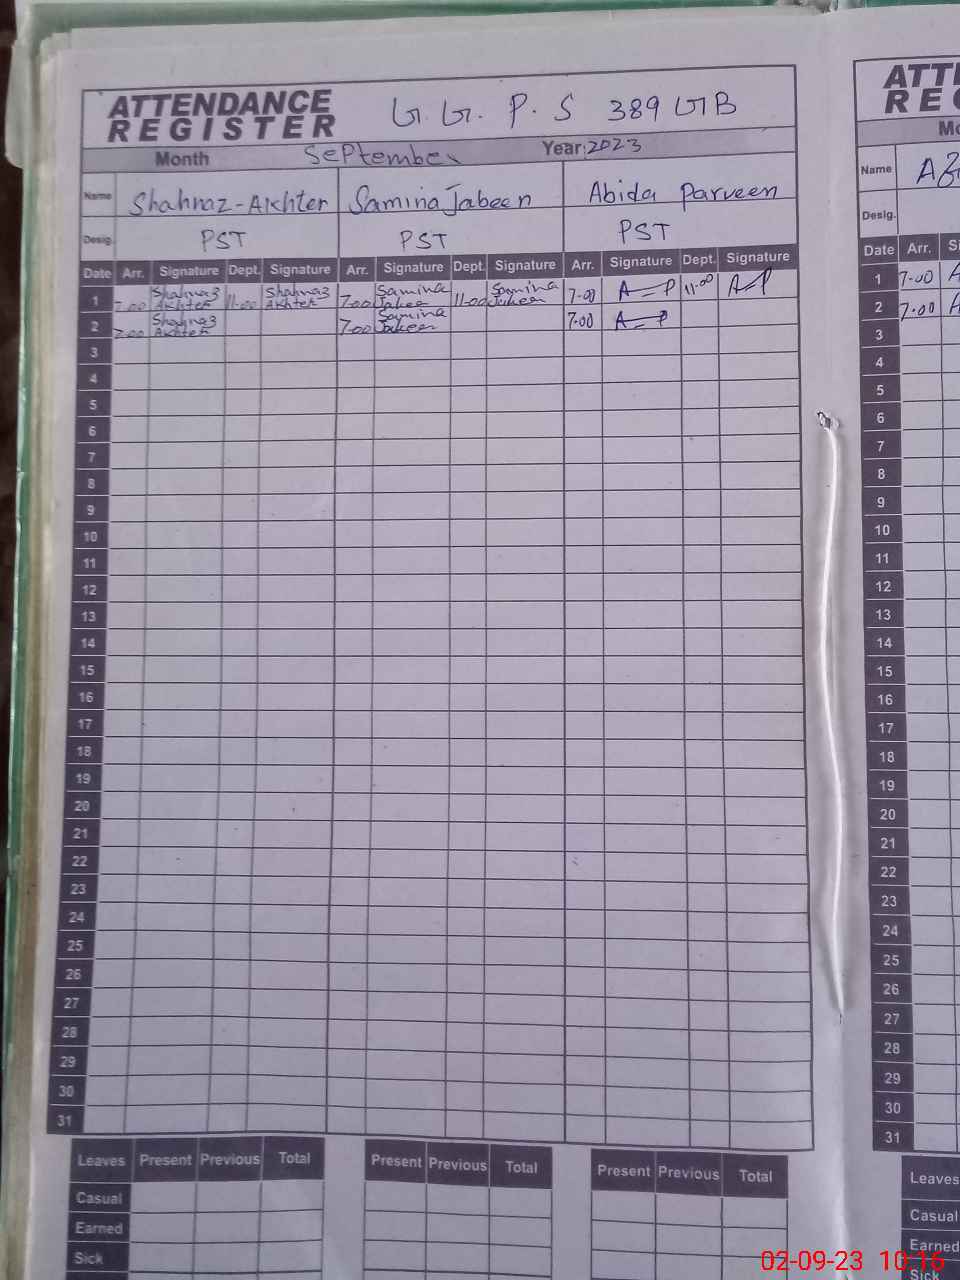 ATTENDANCE
REGISTER
G. G. P. S 389 GB
Month September Year: 2023
Name Shahnaz-Akhter Samina Jabeen Abida Parveen
Desig. PST PST PST
Date Arr. Signature Dept. Signature Arr. Signature Dept. Signature Arr. Signature Dept. Signature
1 7.00 Shahnaz Akhter 11.00 Shahnaz Akhter 7.00 Samina Jabeen 11.00 Samina Jabeen 7.00 A-P 11.00 A-P
2 7.00 Shahnaz Akhter 7.00 Samina Jabeen 7.00 A-P
3
4
5
6
7
8
9
10
11
12
13
14
15
16
17
18
19
20
21
22
23
24
25
26
27
28
29
30
31
Leaves Present Previous Total Present Previous Total Present Previous Total
Casual
Earned
Sick
Name
Desig.
Date Arr.
1 7.00
2 7.00
3
4
5
6
7
8
9
10
11
12
13
14
15
16
17
18
19
20
21
22
23
24
25
26
27
28
29
30
31
Leaves
Casual
Earned
Sick
02-09-23 10:16